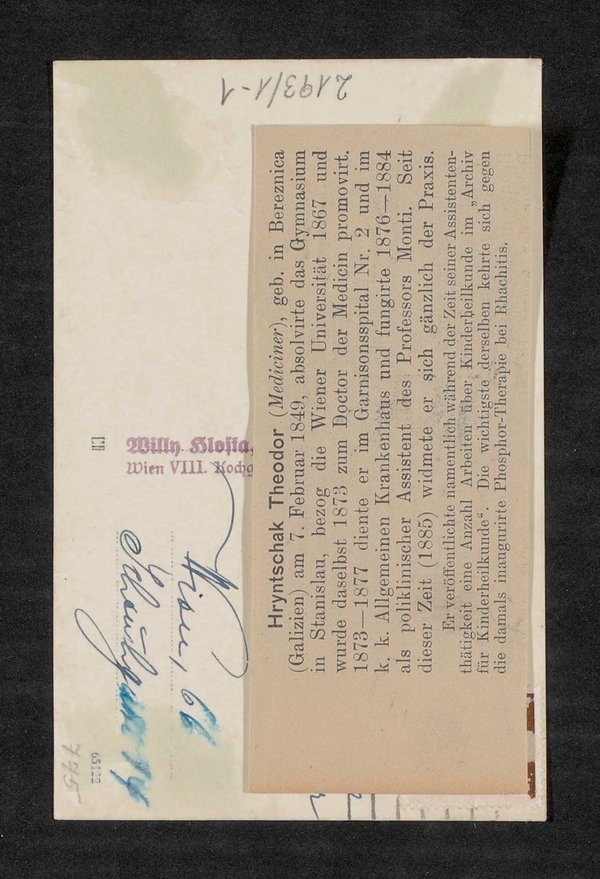 2193/1-1
Willy Klofta,
Wien VIII. Kochg
Wien, 66
795
65122
Hryntschak Theodor (Mediciner), geb. in Bereznica
(Galizien) am 7. Februar 1849, absolvirte das Gymnasium
in Stanislau, bezog die Wiener Universität 1867 und
wurde daselbst 1873 zum Doctor der Medicin promovirt.
1873—1877 diente er im Garnisonsspital Nr. 2 und im
k. k. Allgemeinen Krankenhaus und fungirte 1876—1884
als poliklinischer Assistent des Professors Monti. Seit
dieser Zeit (1885) widmete er sich gänzlich der Praxis.
Er veröffentlichte namentlich während der Zeit seiner Assistenten-
thätigkeit eine Anzahl Arbeiten über Kinderheilkunde im „Archiv
für Kinderheilkunde“. Die wichtigste derselben kehrte sich gegen
die damals inaugurirte Phosphor-Therapie bei Rhachitis.